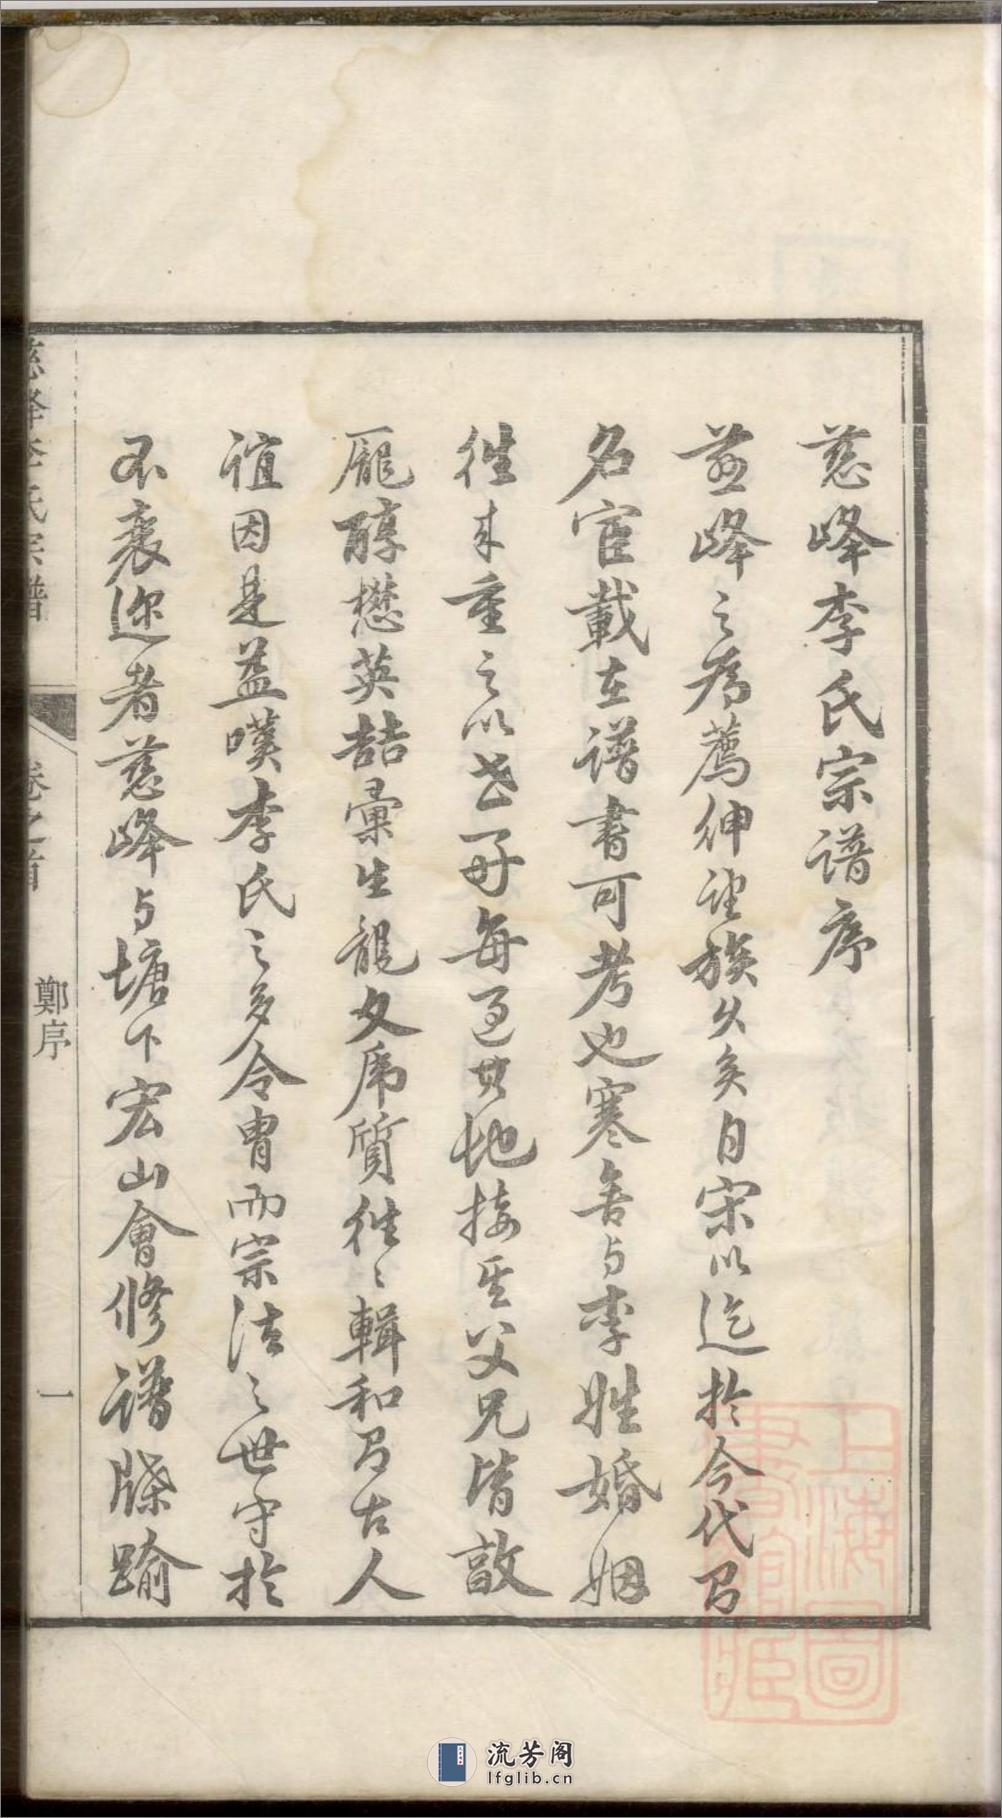 慈峰李氏宗譜序
慈峰之為薦紳望族久矣自宋以迄於今代有
名宦載在譜書可考也寒舍与李姓婚姻
往来重之以世好每過其地接其父兄皆敦
龐醇懋英喆彙生龍文虎質往往輯和有古人
誼因是益嘆李氏之多令胄而宗法之世守於
不衰邇者慈峰与塘下宏山會修譜牒踰
慈峰李氏宗譜
卷之首
鄭序
一
上海圖書館藏
流芳阁
lfglib.cn